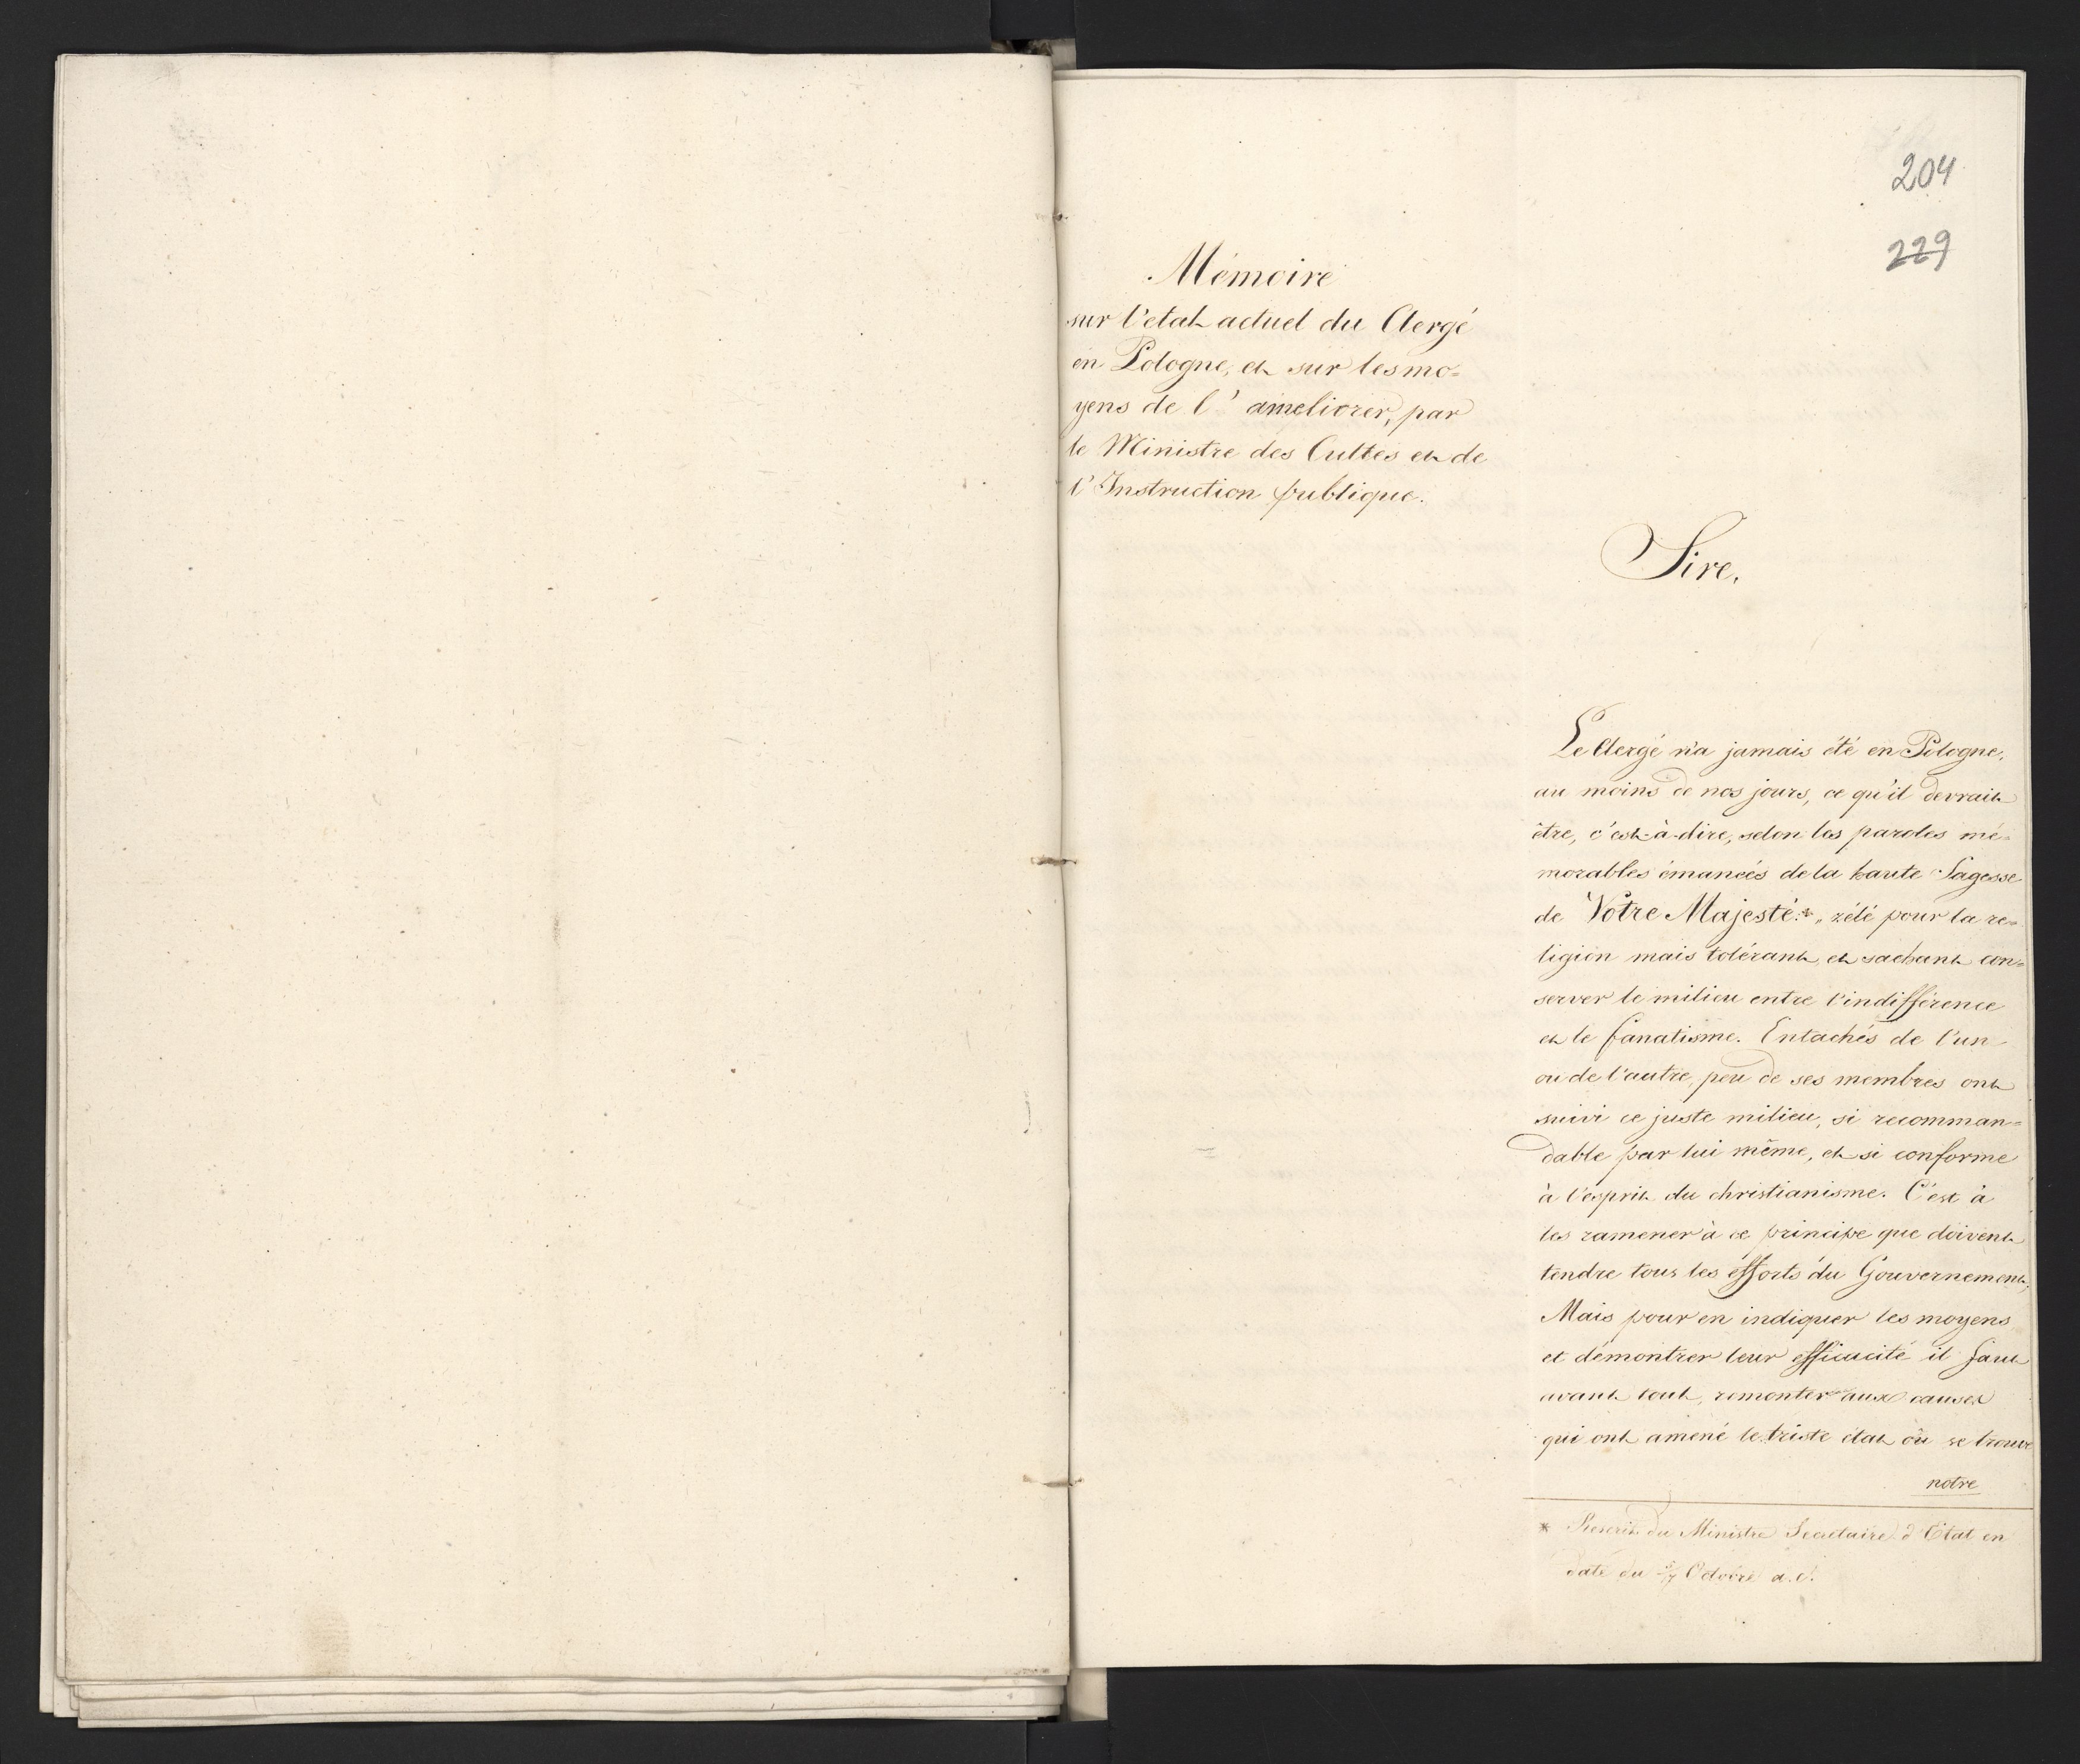 204
229
Mémoire
sur l'etat actuel du Clergé
en Pologne, et sur les mo=
yens de l'ameliorer, par
le Ministre des Cultes et de
l'Instruction publique.
Sire,
Le Clergé n'a jamais été en Pologne,
au moins de nos jours, ce qu'il devrait
être, c'est-à-dire, selon les paroles mé=
morables émanées de la haute Sagesse
de Votre Majesté:* „ zélé pour la re=
ligion mais tolérant, et sachant con=
server le milieu entre l'indifférence
et le fanatisme. Entachés de l'un
ou de l'autre, peu de ses membres ont
suivi ce juste milieu, si recomman=
dable par lui même, et si conforme
à l'esprit du christianisme. C'est à
les ramener à ce principe que doivent
tendre tous les efforts du Gouvernement,
Mais pour en indiquer les moyens
et démontrer leur efficacité il faut
avant tout, remonter aux causes
qui ont amené le triste état où se trouve
notre
* Rescrit du Ministre Secretaire d'Etat en
date du Octobre a. c.